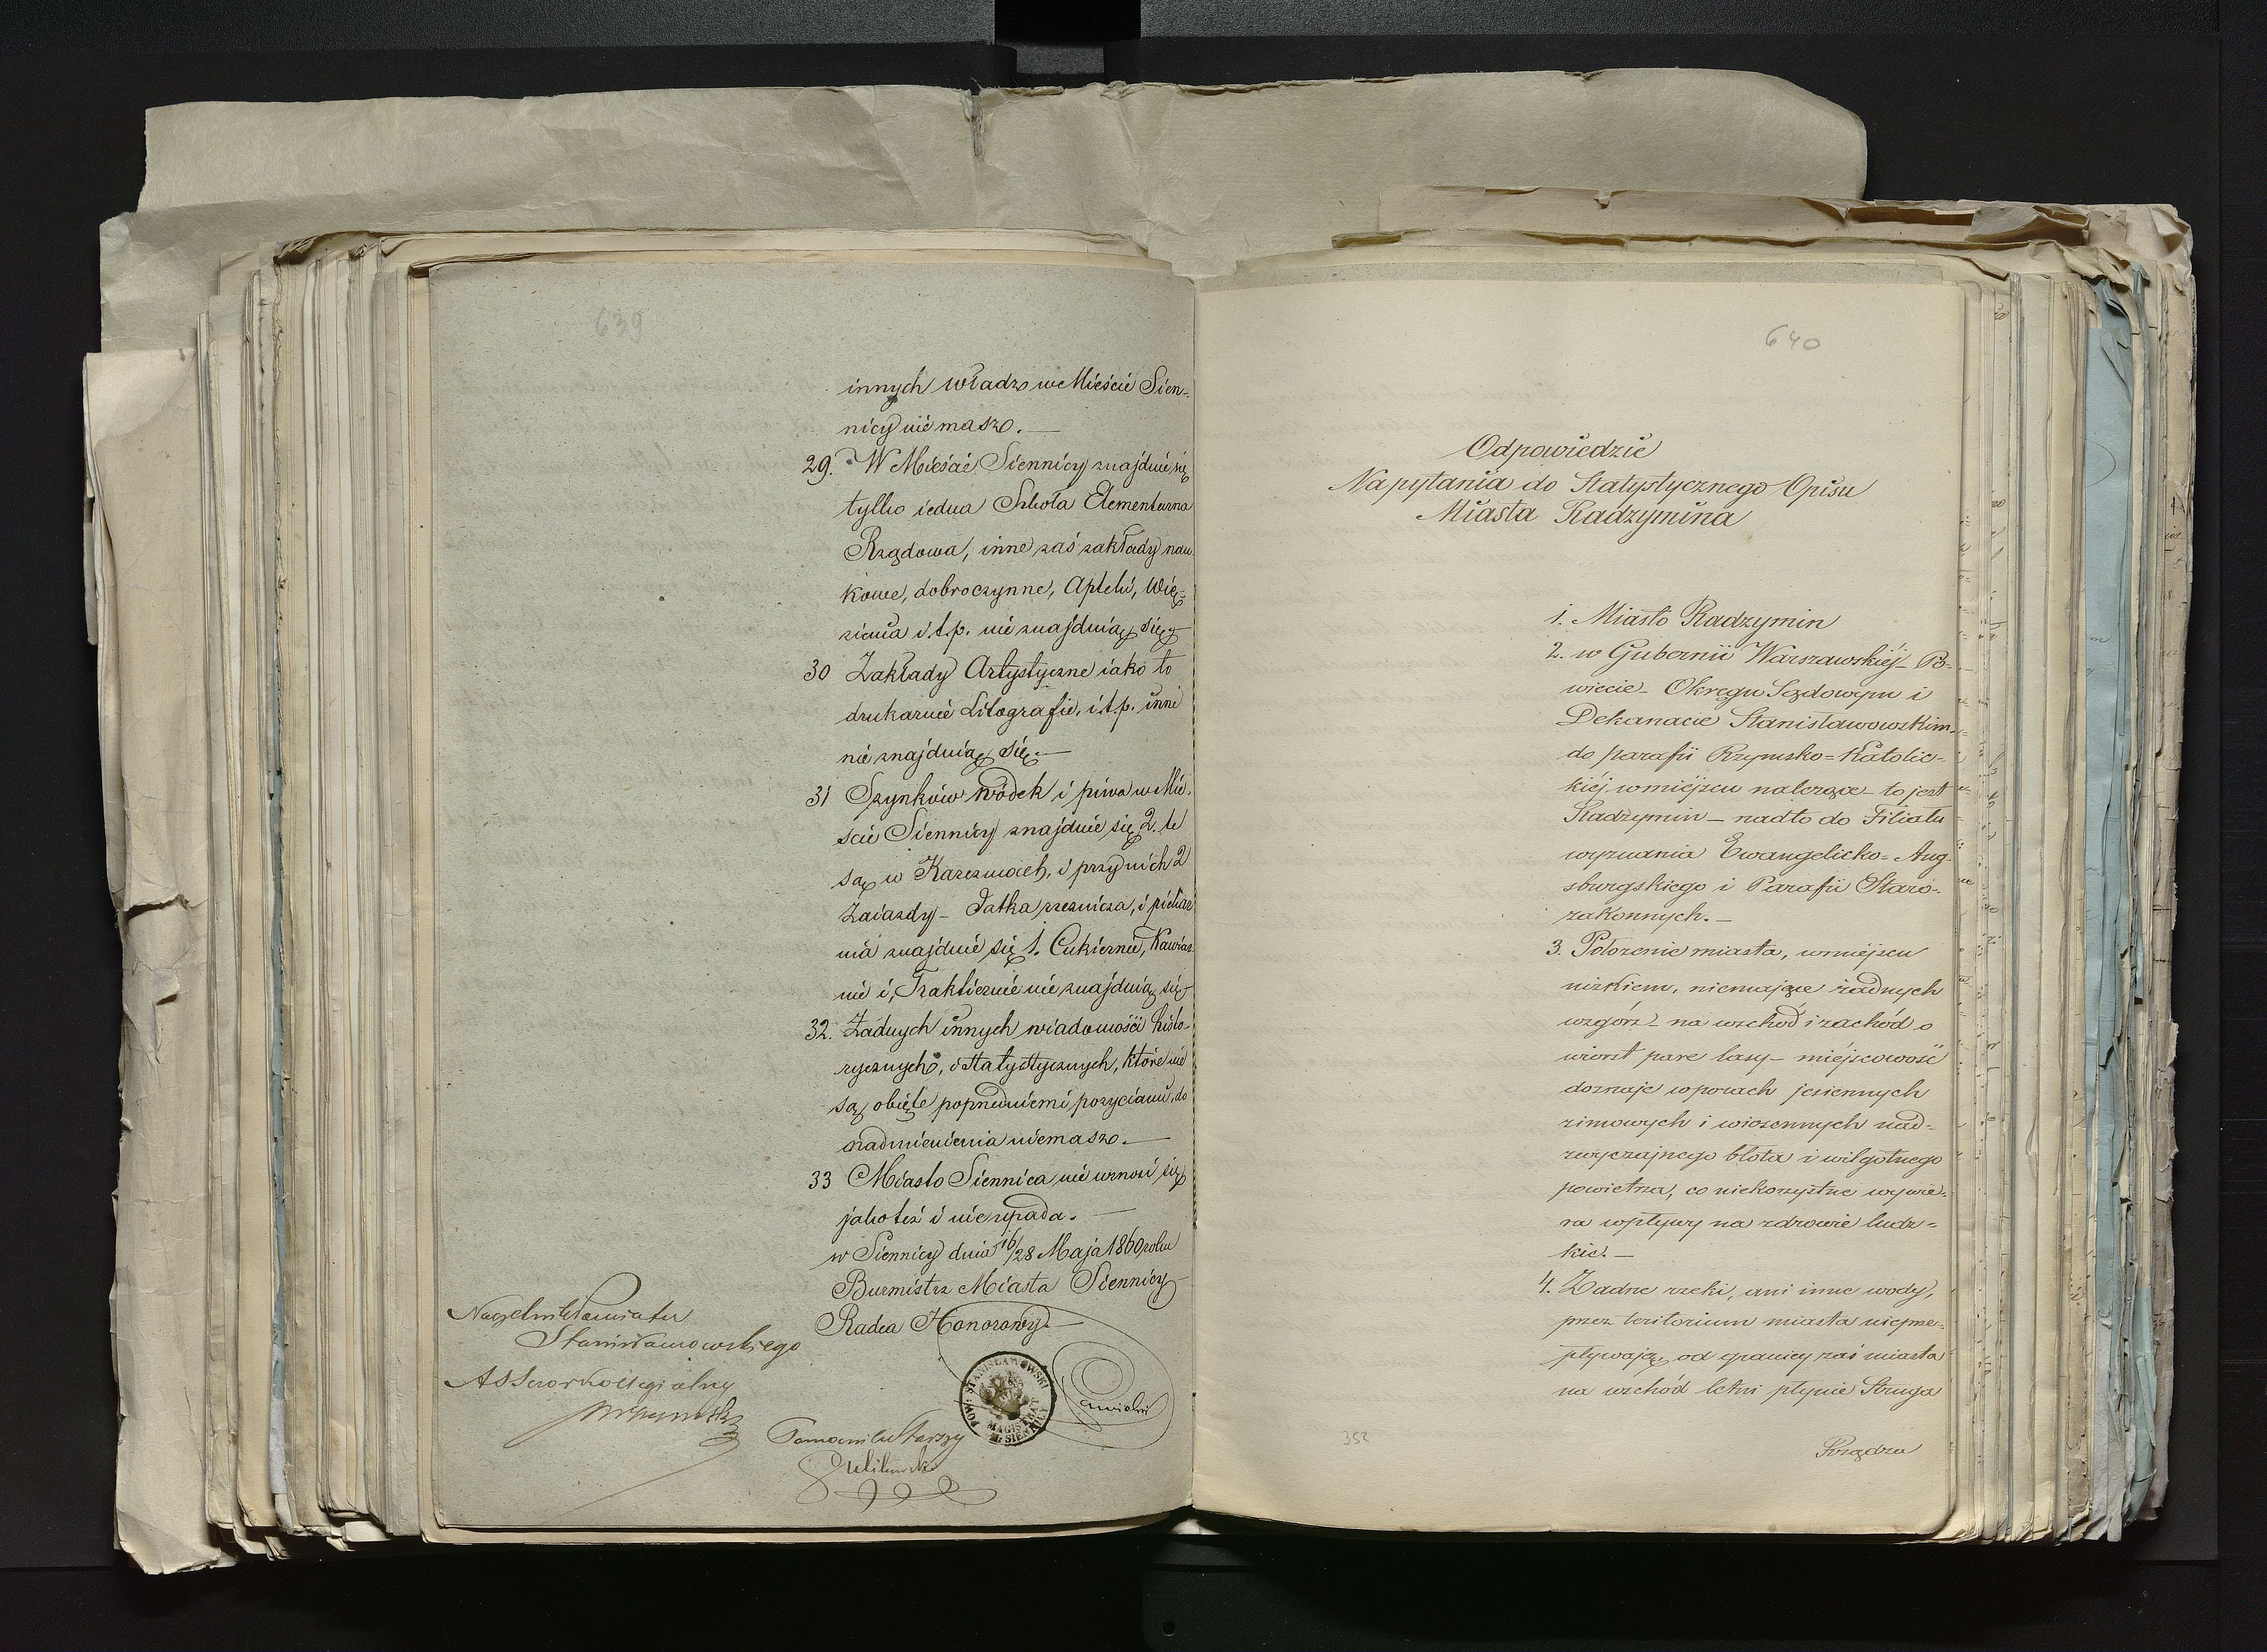 639
innych władz w Mieście Sien-
nicy niémasz. —
29. W Mieście Siennicy znajduié się
tylko iedna Szkoła Elementarna
Rządowa, inne zaś zakłady nau
kowe, dobroczynne, Apteki, Wię-
zienia i t.p. nié znajduią się
30 Zakłady Artystyczne iako to
drukarnié Litografie, i.t.p. inné
nié znajduią się. —
31 Szynków wódek i piwa w Mie-
scie Siennicy znajduié się 2. te
są w Karczmach, i przy nich 2
Zaiazdy — Jatka rzeznicza, i piekar
nia znajduié się 1. Cukiernié, Kawiar
nié i, Traktiernié nié znajduią się
32. Żadnych innych wiadomości histo-
rycznych, i Statystycznych, które nié
są obięte poprzedniemi pozyciami, do
nadmienienia niemasz. —
33 Miasto Siennica nié wznosi się
jako też i nie upada. —
w Siennicy dnia 16/28 Maja 1860 roku
Burmistrz Miasta Siennicy
Radca Honorowy
Naczelnik Powiatu
Stanisławowskiego
Assesor Kollegialny
POW: STANISŁAWOWSKI
MAGISTRAT
M. SIENNICY
640
Odpowiedzie
Na pytania do Statystycznego Opisu
Miasta Radzymina
1. Miasto Radzymin
2. w Gubernii Warszawskiéj — Po-
wiecie — Okręgu Sądowym i
Dekanacie Stanisławowskim,
do parafii Rzymsko=Katolic-
kiéj w miéjscu należące — to jest
Radzymin — nadto do Filiału
wyznania Ewangelicko=Aug-
sburgskiego i Parafii Staro-
zakonnych. —
3. Położenie miasta, w miéjscu
nizkiem, niemające żadnych
wzgórz — na wschód i zachód o
wiorst parę lasy — miéjscowość
doznaje w porach jesiennych
zimowych i wiosennych nad-
zwyczajnego błota i wilgotnego
powietrza, co niekorzystne wywie-
ra wpływy na zdrowie ludz-
kie. —
4. Żadne rzeki, ani inne wody,
przez teritorium miasta nieprze-
pływają, od granicy zaś miasta
na wschód letni płynie Struga
Rządza
352